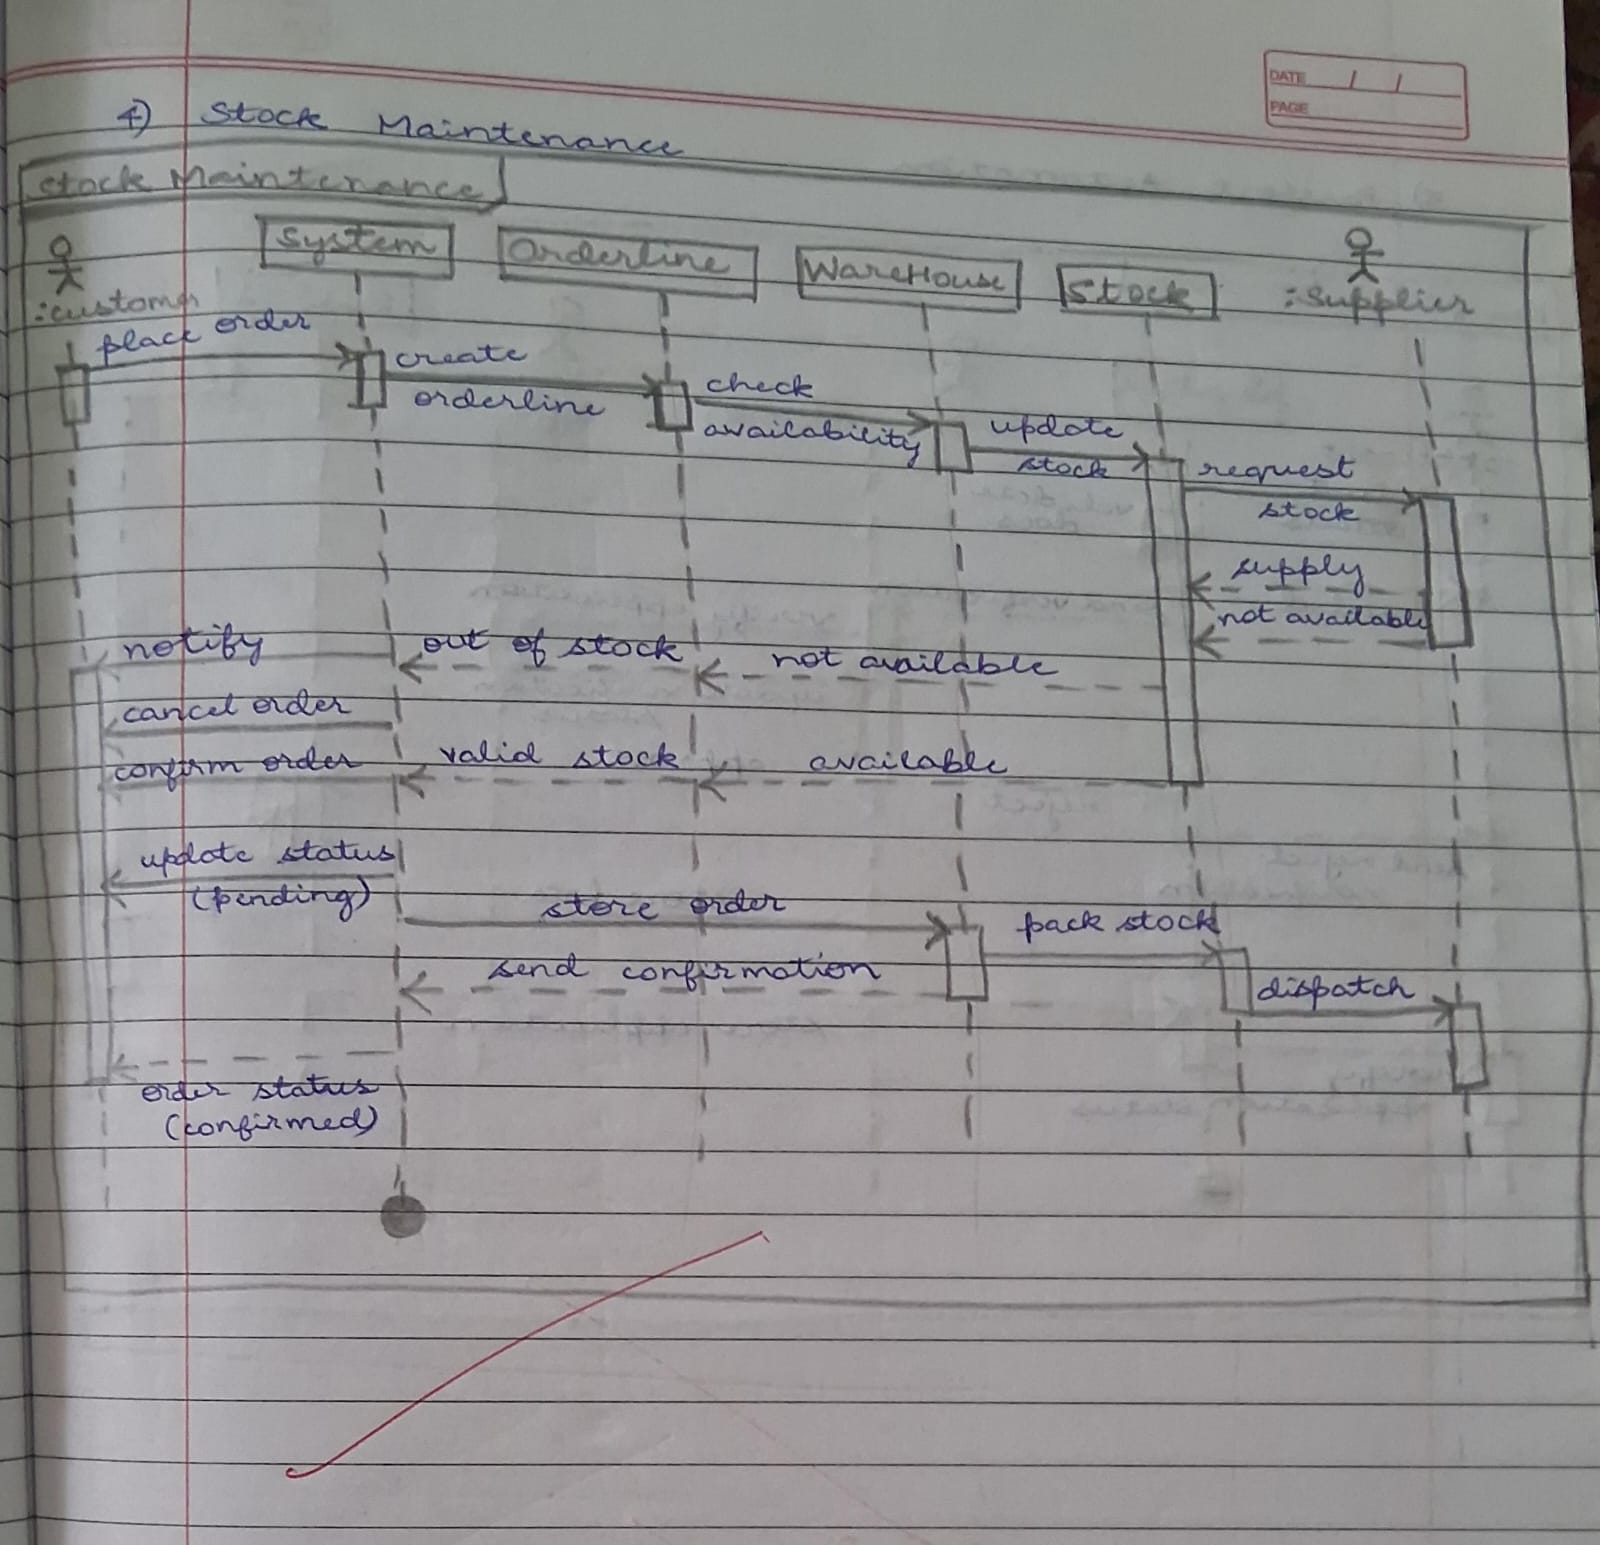 DATE / /
PAGE
4) Stock Maintenance
Stock Maintenance
System
Orderline
WareHouse
Stock
:customer
:supplier
place order
create
orderline
check
availability
update
stock
request
stock
supply
not available
notify
out of stock
not available
cancel order
confirm order
valid stock
available
update status
(pending)
store order
pack stock
send confirmation
dispatch
order status
(confirmed)